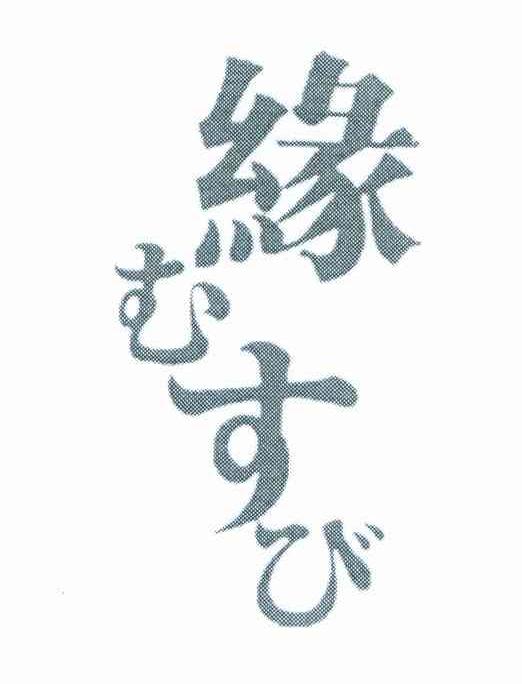 縁むすび